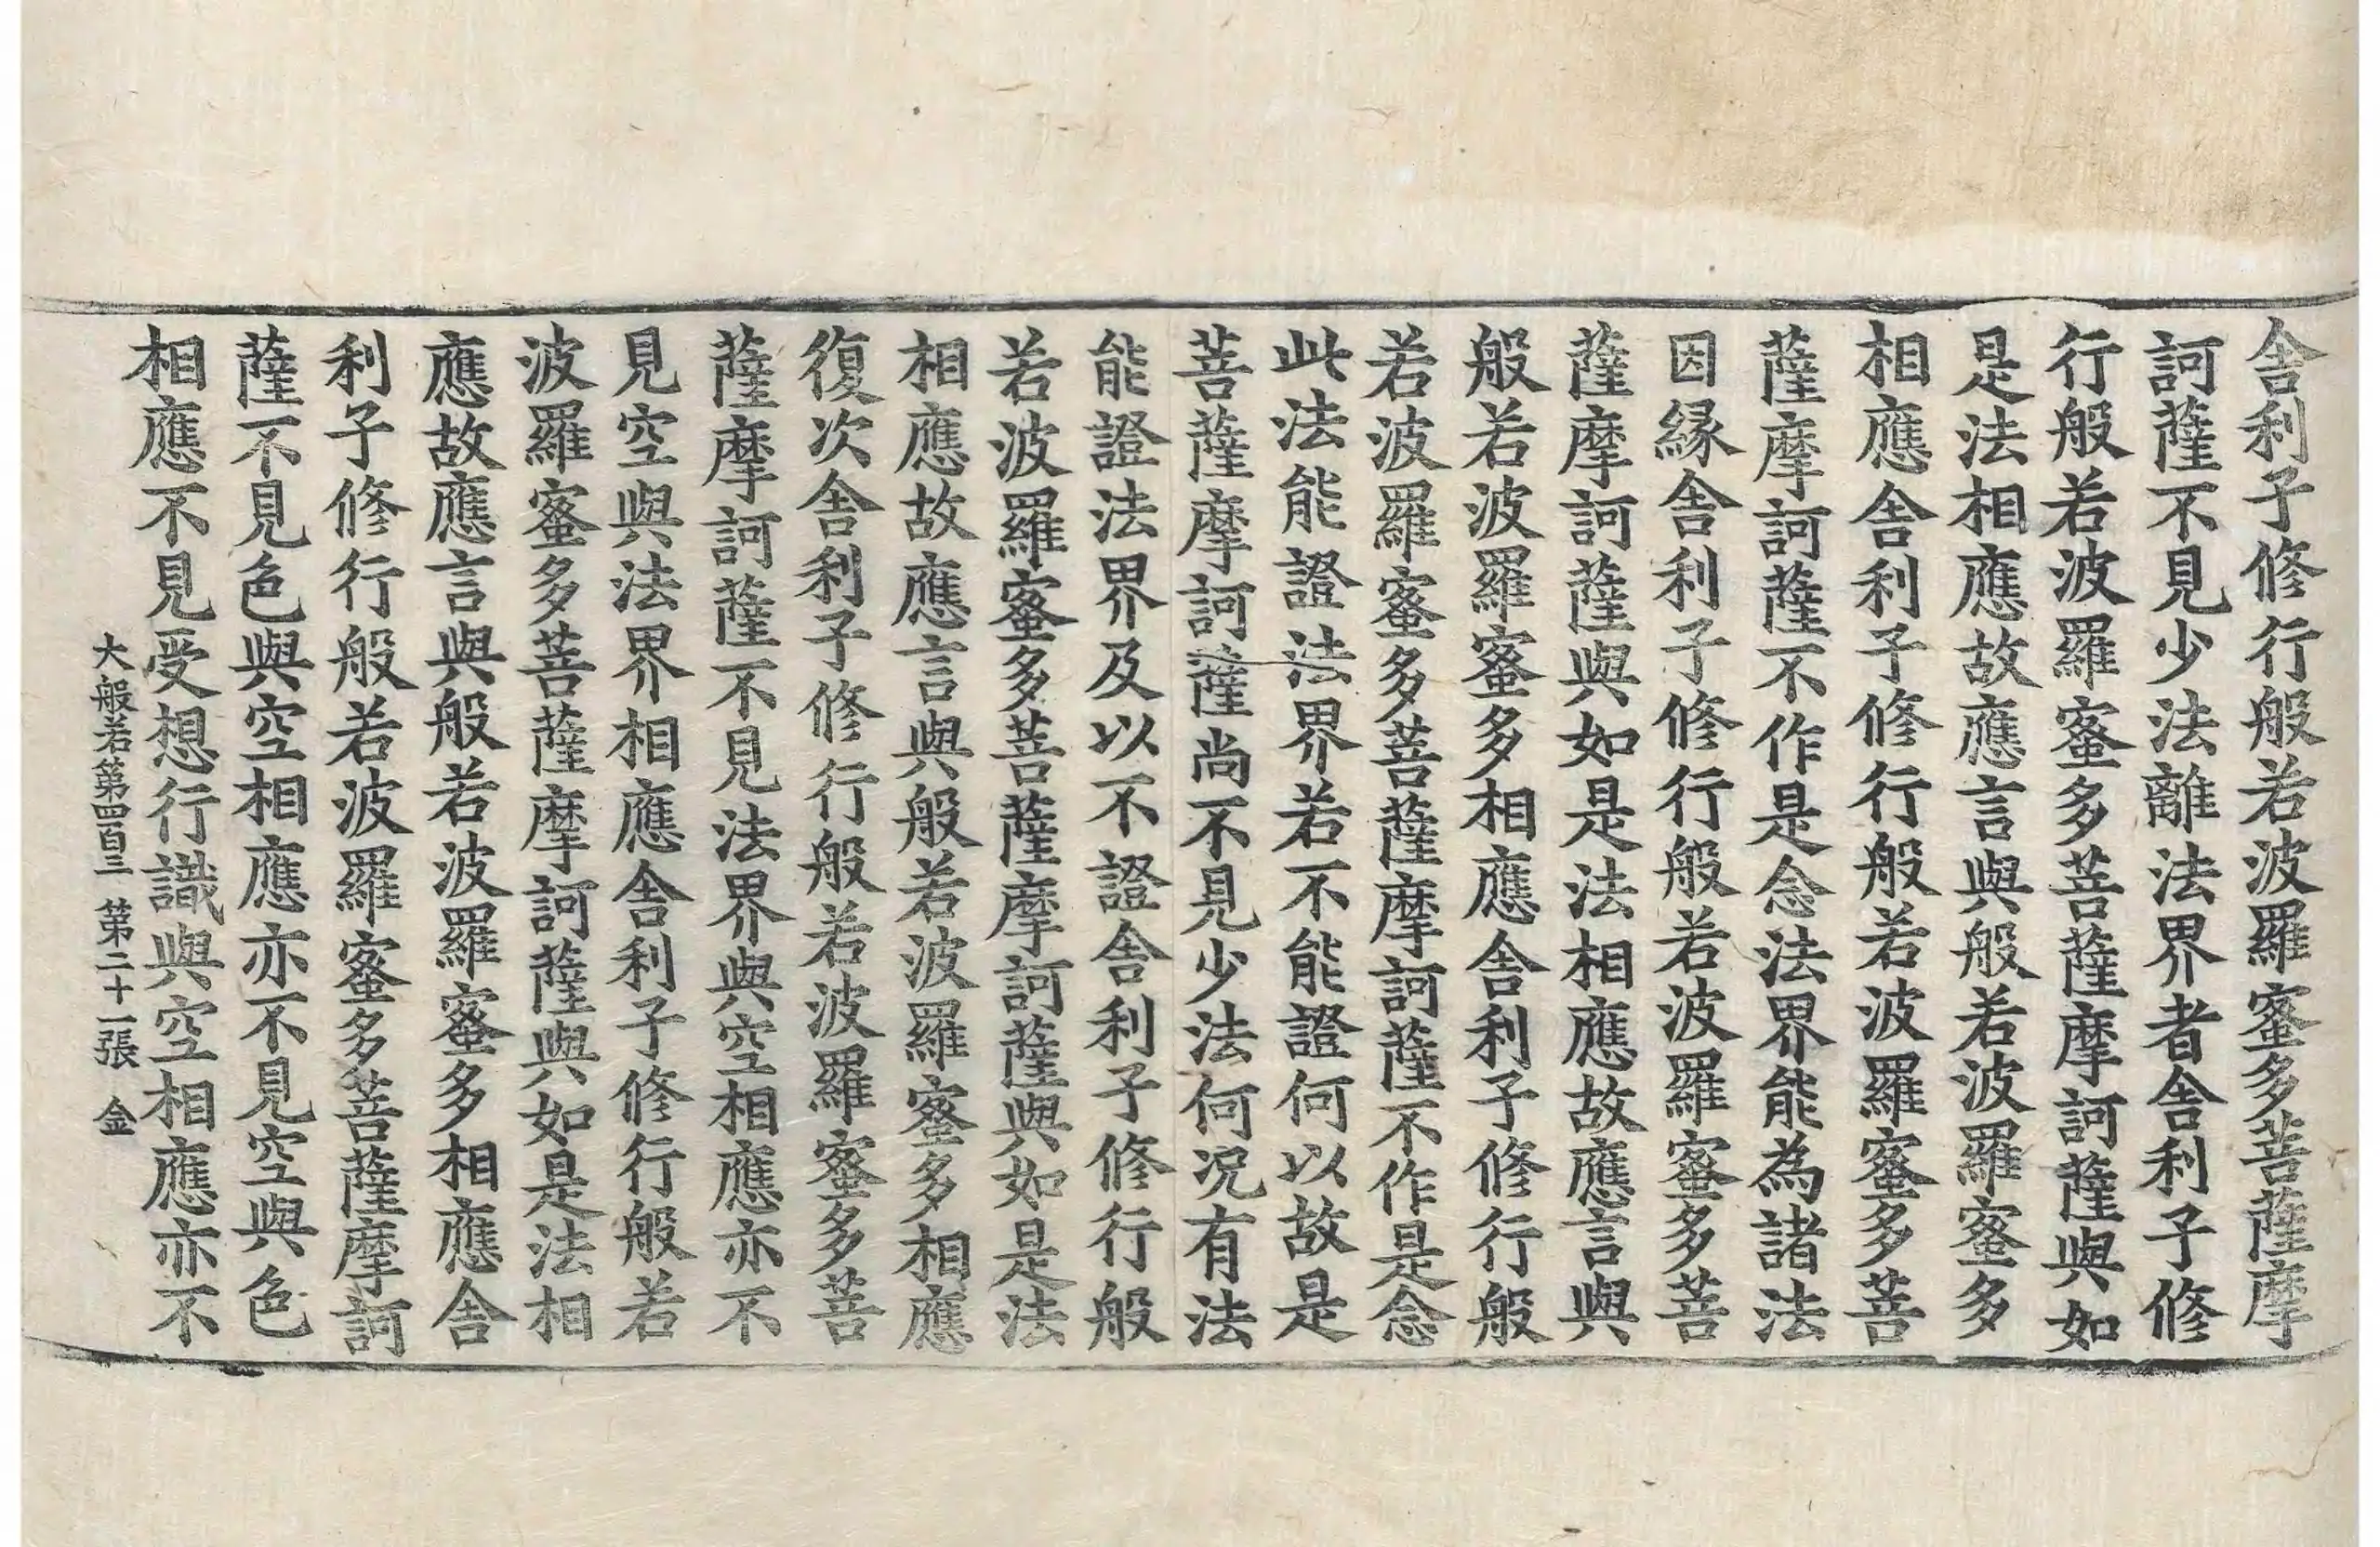 舍利子修行般若波羅蜜多菩薩摩
訶薩不見少法離法界者舍利子修
行般若波羅蜜多菩薩摩訶薩與如
是法相應故應言與般若波羅蜜多
相應舍利子修行般若波羅蜜多菩
薩摩訶薩不作是念法界能為諸法
因緣舍利子修行般若波羅蜜多菩
薩摩訶薩與如是法相應故應言與
般若波羅蜜多相應舍利子修行般
若波羅蜜多菩薩摩訶薩不作是念
此法能證法界若不能證何以故是
菩薩摩訶薩尚不見少法何況有法
能證法界及以不證舍利子修行般
若波羅蜜多菩薩摩訶薩與如是法
相應故應言與般若波羅蜜多相應
復次舍利子修行般若波羅蜜多菩
薩摩訶薩不見法界與空相應亦不
見空與法界相應舍利子修行般若
波羅蜜多菩薩摩訶薩與如是法相
應故應言與般若波羅蜜多相應舍
利子修行般若波羅蜜多菩薩摩訶
薩不見色與空相應亦不見空與色
相應不見受想行識與空相應亦不
大般若第四百三 第二十一張 金